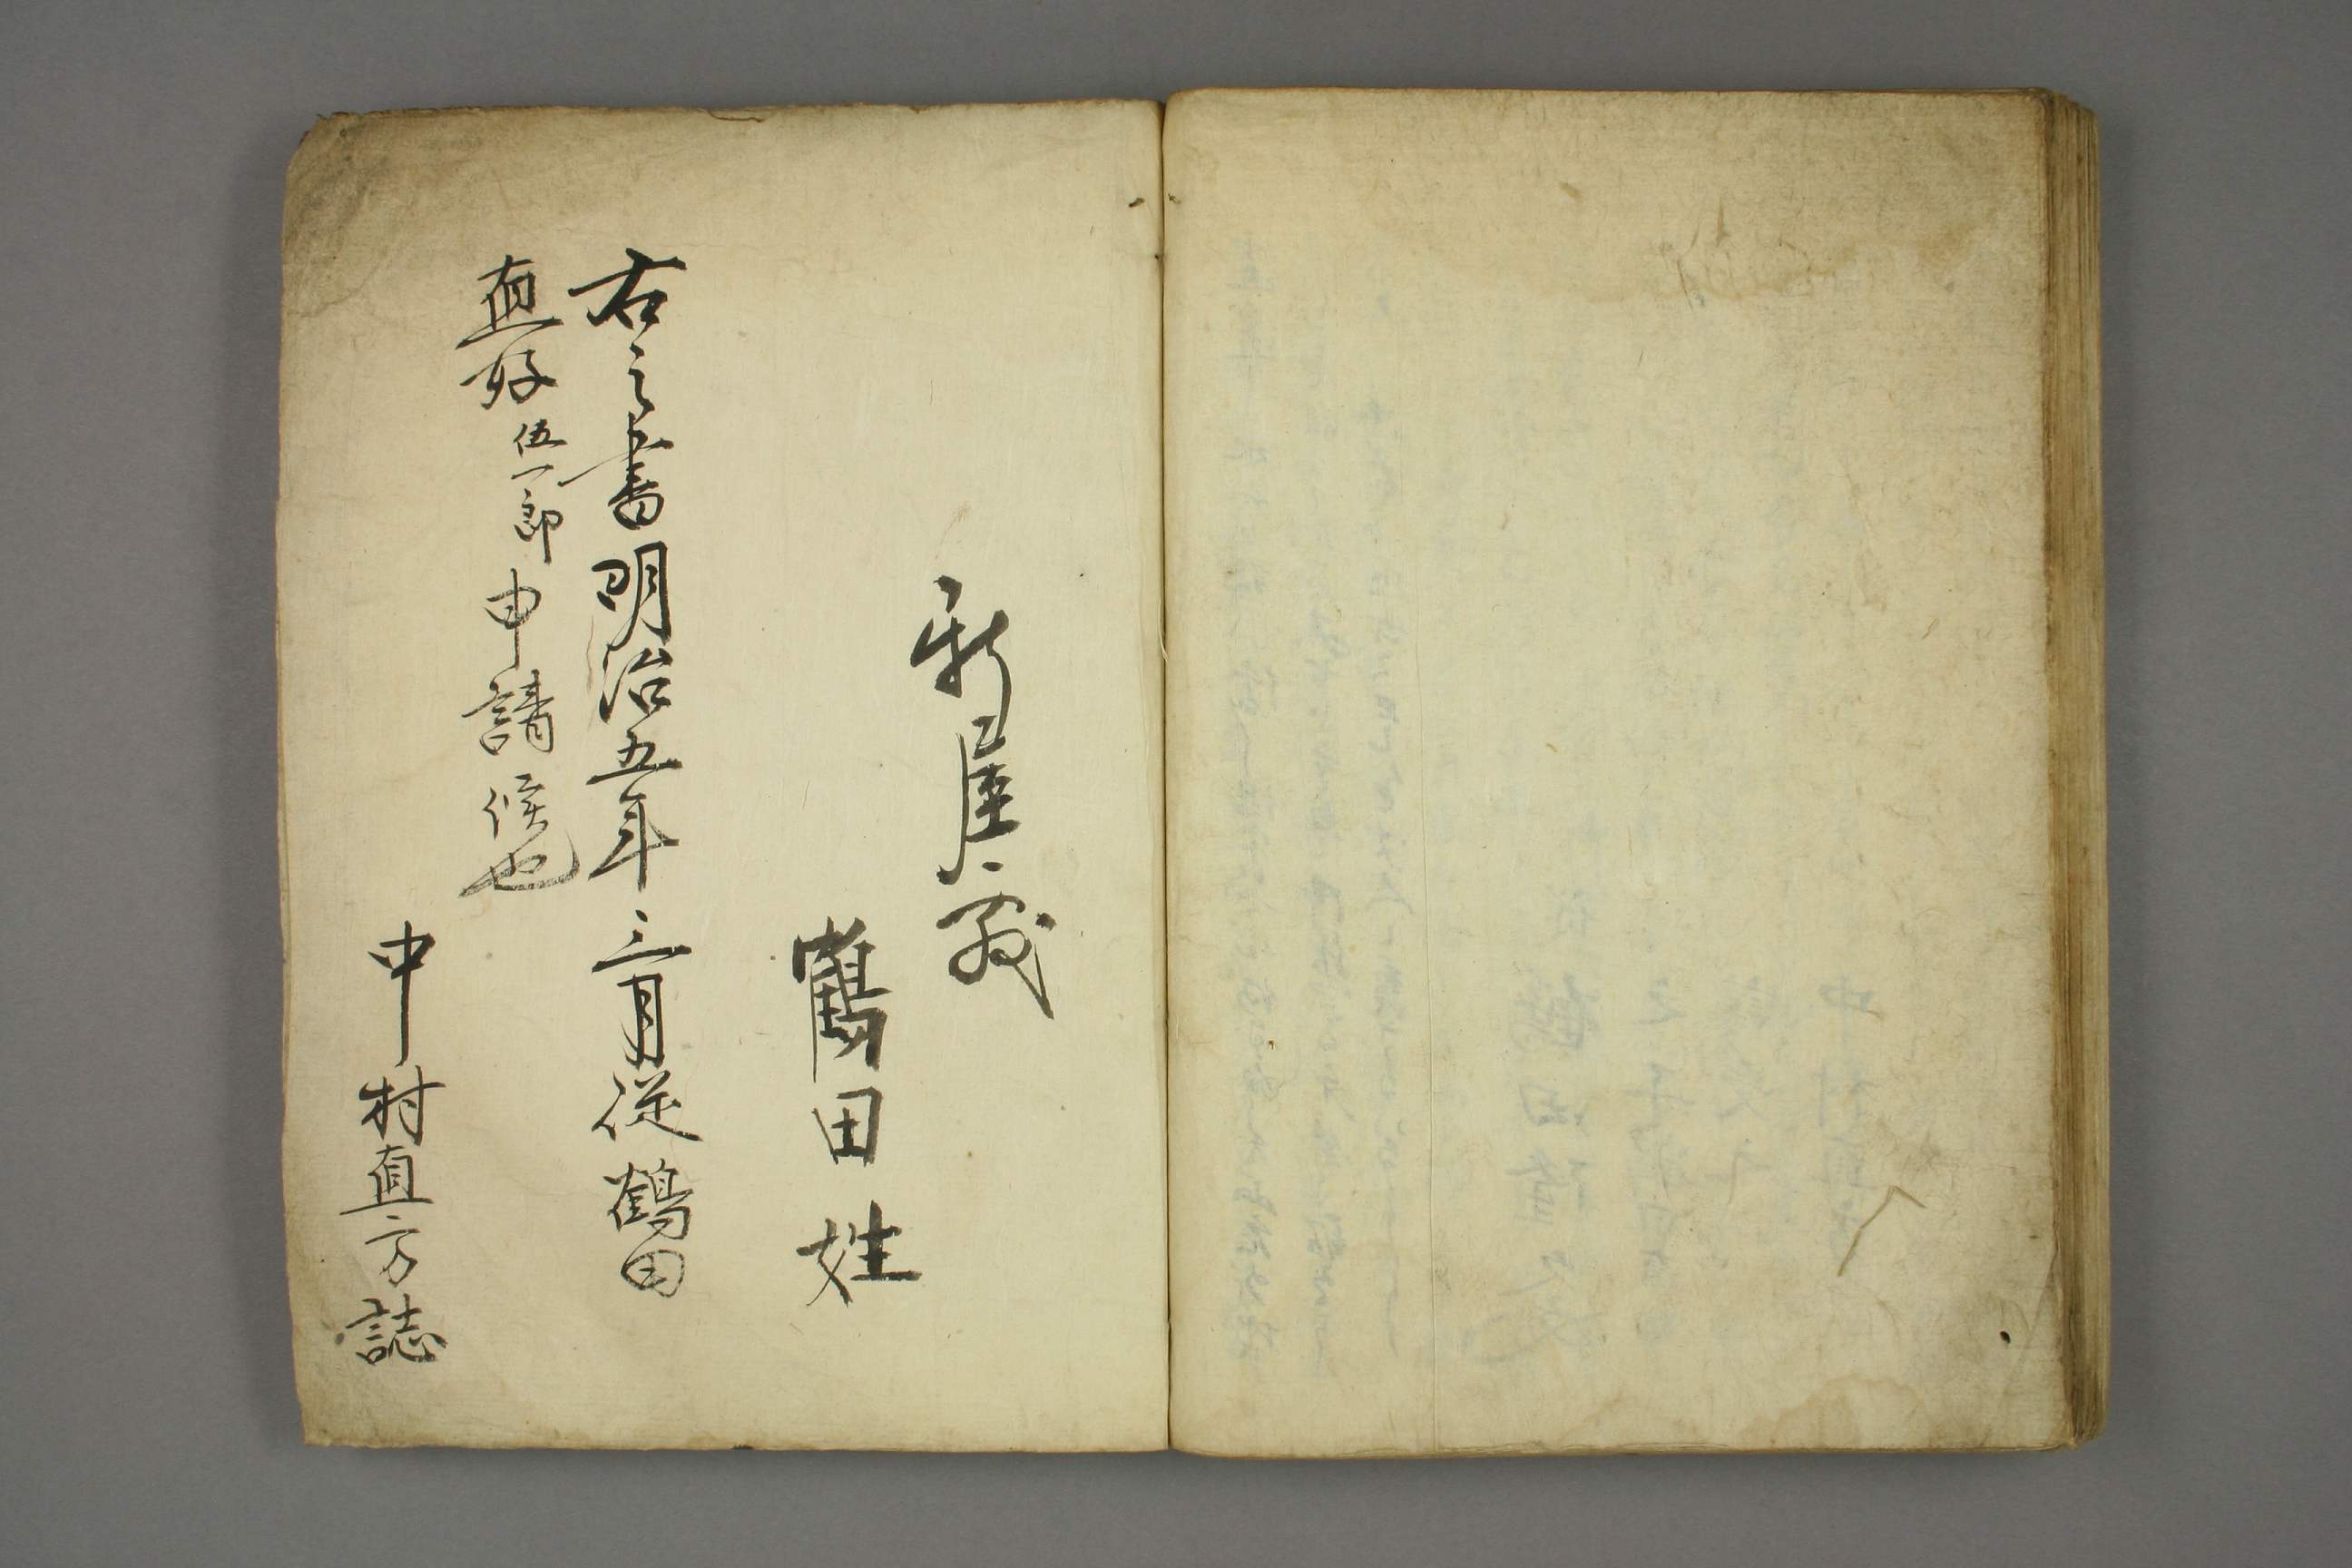 新屋敷
鶴田姓
右之書明治五年三月従鶴田
直好伍一郎申請候也
中村直方誌